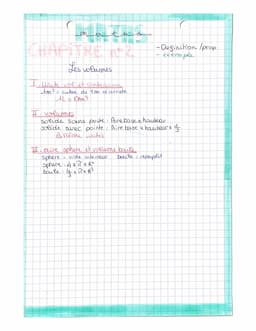 maths
MATHS
CHAPITRE n°2
- Définition / prop
- exemple
Les volumes
I. Unité vol et contenance
1dm³ : cube de 1cm d'arrête
1L = 1dm³
II. volumes
solide sans pointe : Aire base x hauteur
solide avec pointe : Aire base x hauteur x 1/3
III. aire sphère et volume boule
sphère : vide intérieur boule : remplit
sphère : 4 x π x R²
boule : 4/3 x π x R³